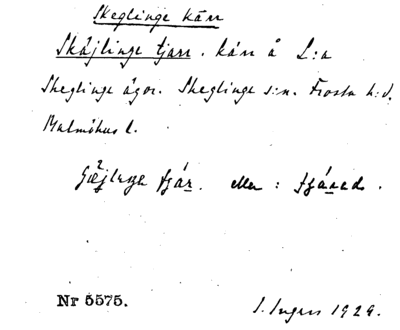 Skeglinge kärr
Skäjlinge tjarr. kärr å L:a
Skeglinge ägor. Skeglinge s:n. Frosta h:d.
Malmöhus l.
eller :
Nr 5575.
I. Ingers 1929.